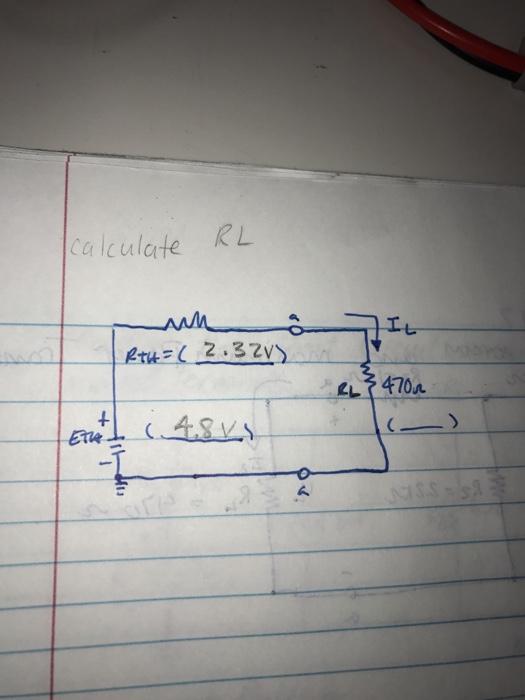 calculate RL
a
IL
RTH = ( 2.32V )
RL 470Ω
+
ETH ( 4.8V )
( __ )
-
a